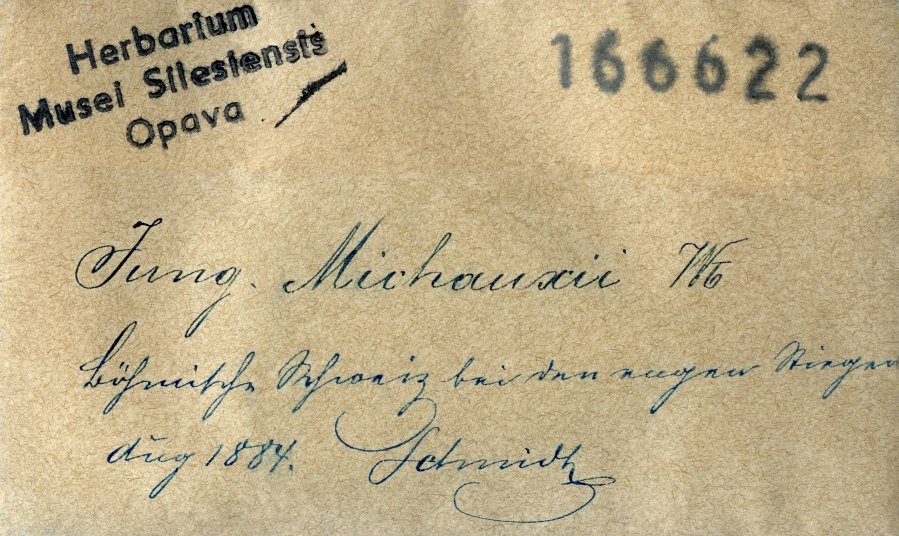 Herbarium
Musei Silesiensis
Opava
166622
Jung. Michauxii
Böhmische Schweiz bei den engen Stiegen
Aug 1884. Schmidt